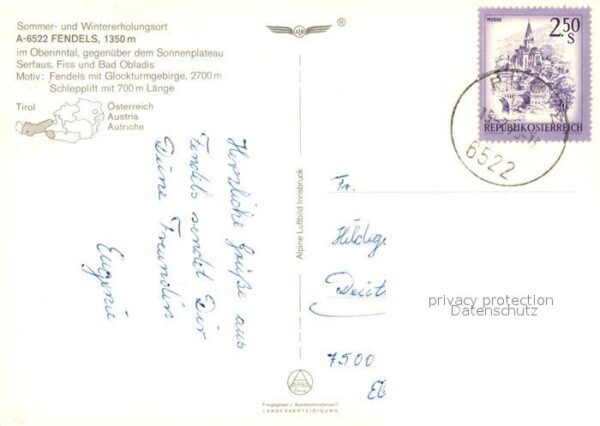 Sommer- und Wintererholungsort
A-6522 FENDELS, 1350 m
im Oberinntal, gegenüber dem Sonnenplateau
Serfaus, Fiss und Bad Obladis
Motiv: Fendels mit Glockturmgebirge, 2700 m
Schlepplift mit 700 m Länge
Tirol
Österreich
Austria
Autriche
Herzliche Grüße aus
Fendels sendet Dir
Deine Freundin
Eugenie
Alpine Luftbild Innsbruck
Freigegeben v. Bundesministerium f.
LANDESVERTEIDIGUNG
®
MURAU
2.50
S
REPUBLIK ÖSTERREICH
6522
Fr.
Hildeg
Deut
7500
privacy protection
Datenschutz